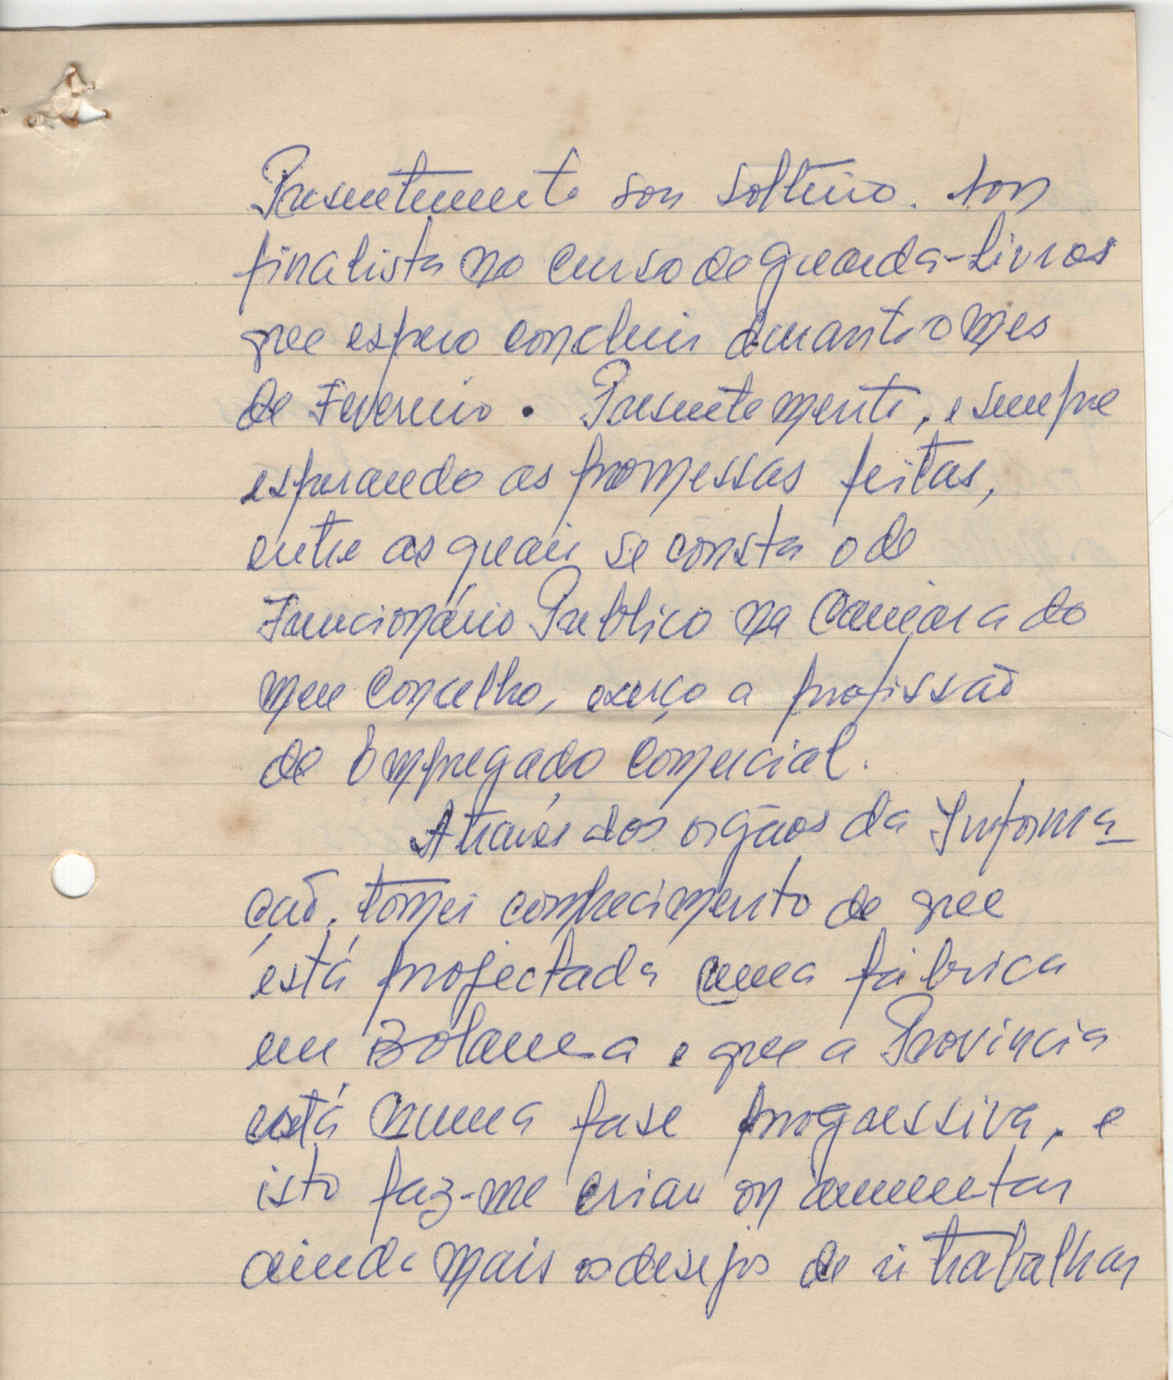 Presentemente sou solteiro. Sou
finalista no curso de guarda-livros
que espero concluir durante o mes
de Fevereiro. Presentemente, e sempre
esperando as promessas feitas,
entre as quais se consta o de
Funcionário Publico na Camâra do
meu Concelho, exerço a profissão
de Empregado Comercial.
Através dos orgãos da Informa
ção, tomei conhecimento de que
está projectada uma fábrica
em Bolama e que a Provincia
está numa fase progressiva, e
isto faz-me criar ou aumentar
ainda mais os desejos de ir trabalhar